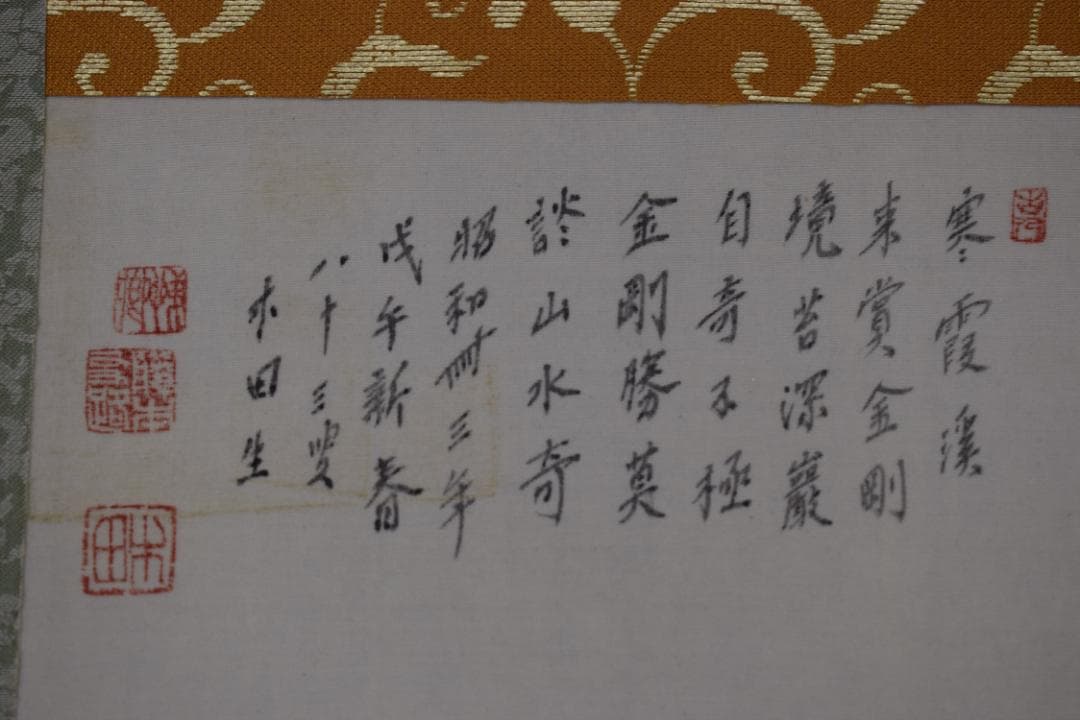 寒霞溪
来賞金剛
境苔深巖
自奇不極
金剛勝莫
談山水奇
昭和卌三年
戊午新春
八十三叟
木田生
木田